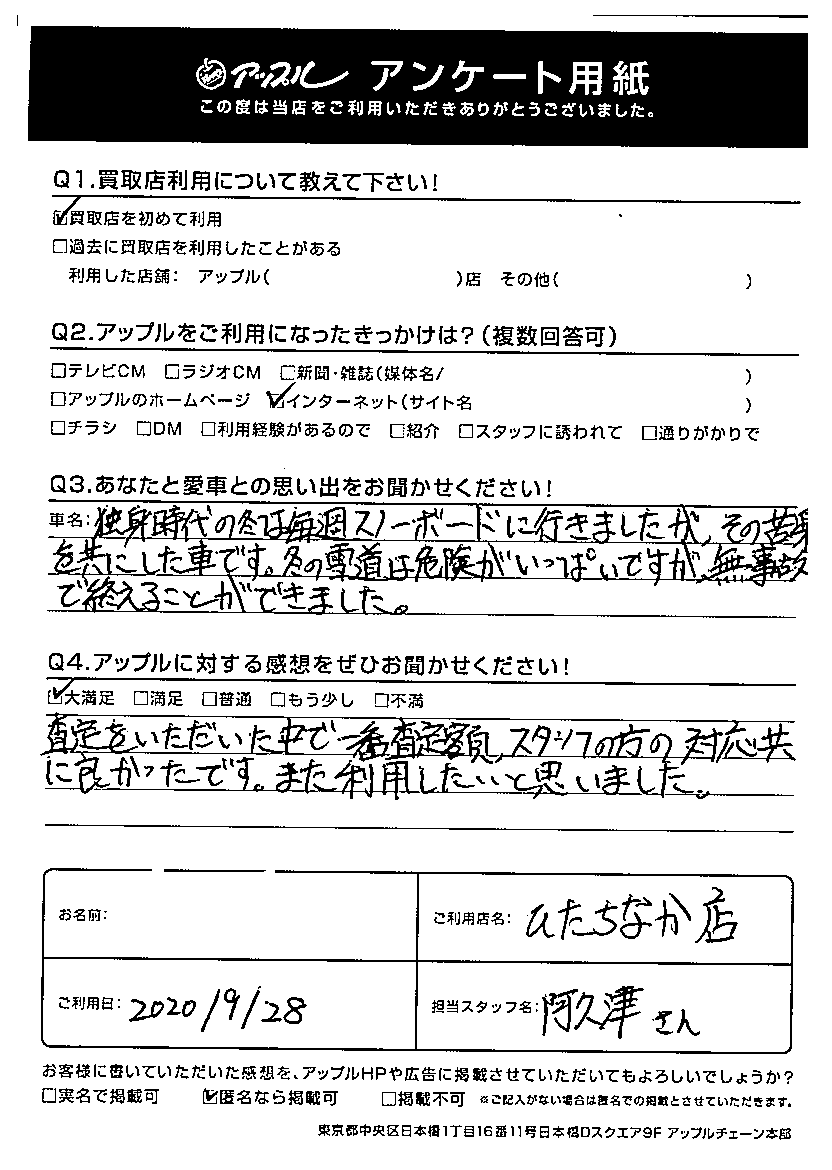 アップル アンケート用紙
この度は当店をご利用いただきありがとうございました。
Q1.買取店利用について教えて下さい!
☑買取店を初めて利用
□過去に買取店を利用したことがある
利用した店舗: アップル( )店 その他( )
Q2.アップルをご利用になったきっかけは?(複数回答可)
□テレビCM □ラジオCM □新聞・雑誌(媒体名/ )
□アップルのホームページ ☑インターネット(サイト名 )
□チラシ □DM □利用経験があるので □紹介 □スタッフに誘われて □通りがかりで
Q3.あなたと愛車との思い出をお聞かせください!
車名:独身時代の冬は毎週スノーボードに行きましたが、その苦楽
を共にした車です。冬の雪道は危険がいっぱいですが、無事故
で終えることができました。
Q4.アップルに対する感想をぜひお聞かせください!
☑大満足 □満足 □普通 □もう少し □不満
査定をいただいた中で一番査定額、スタッフの方の対応共
に良かったです。また利用したいと思いました。
お名前:
ご利用店名: ひたちなか店
ご利用日: 2020/9/28
担当スタッフ名: 阿久津さん
お客様に書いていただいた感想を、アップルHPや広告に掲載させていただいてもよろしいでしょうか?
□実名で掲載可 ☑匿名なら掲載可 □掲載不可 ※ご記入がない場合は匿名での掲載とさせていただきます。
東京都中央区日本橋1丁目16番11号日本橋Dスクエア9F アップルチェーン本部